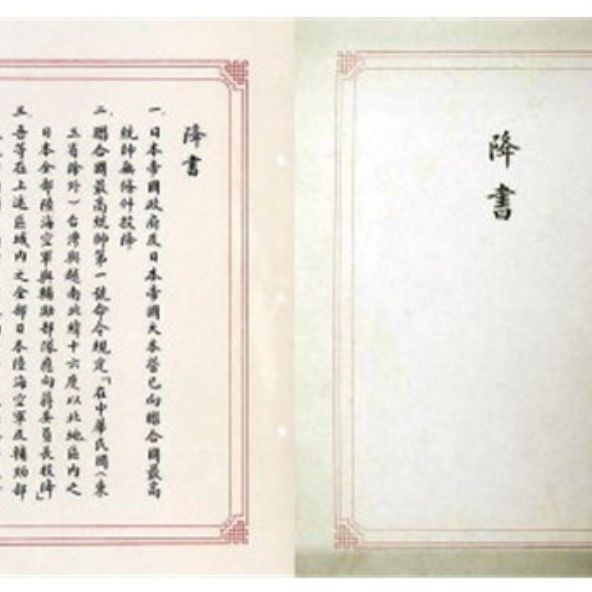 降書
降書
一、日本帝國政府及日本帝國大本營已向聯合國最高
統帥無條件投降
二、聯合國最高統帥第一號命令規定「在中華民國(東
三省除外)台灣與越南北緯十六度以北地區內之
日本全部陸海空軍與輔助部隊應向蔣委員長投降」
三、吾等在上述區域內之全部日本陸海空軍及輔助部